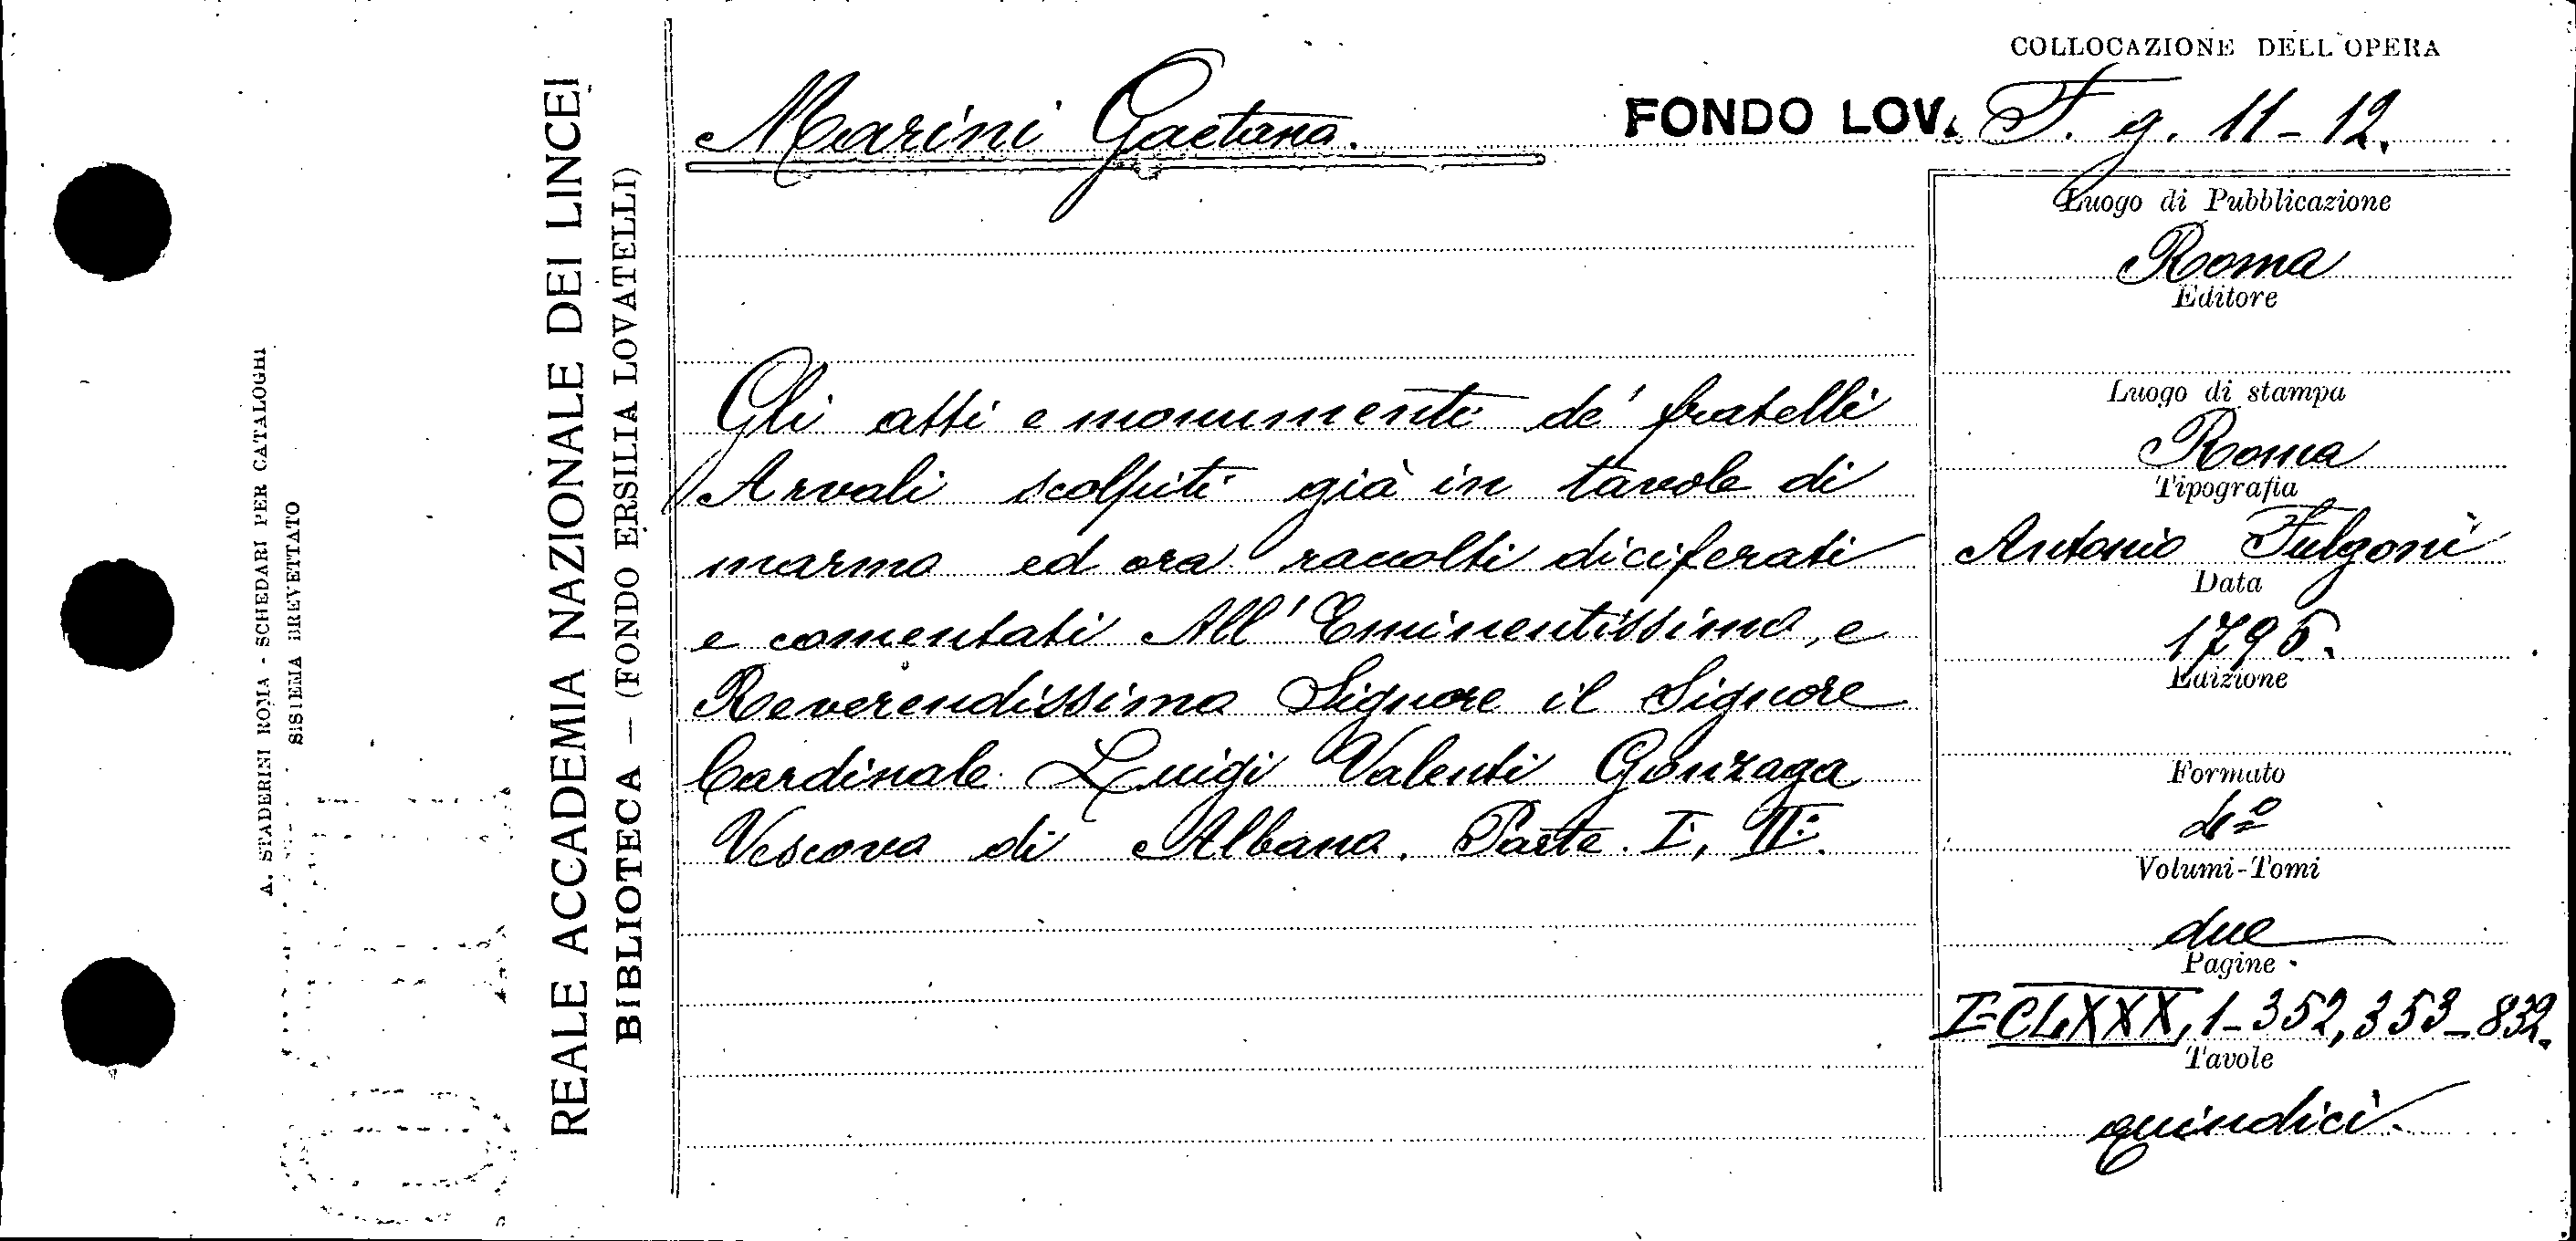 A. STADERINI ROMA - SCHEDARI PER CATALOGHI
SISTEMA BREVETTATO
REALE ACCADEMIA NAZIONALE DEI LINCEI
BIBLIOTECA — (FONDO ERSILIA LOVATELLI)
COLLOCAZIONE DELL'OPERA
Marini Gaetano.
FONDO LOV. F. g. 11-12.
Gli atti e monumenti de' fratelli
Arvali scolpiti già in tavole di
marmo ed ora raccolti diciferati
e comentati All'Eminentissimo, e
Reverendissimo Signore il Signore
Cardinale Luigi Valenti Gonzaga
Vescovo di Albano. Parte. I, II.
Luogo di Pubblicazione
Roma
Editore
Luogo di stampa
Roma
Tipografia
Antonio Fulgoni
Data
1795.
Edizione
Formato
4º
Volumi-Tomi
due
Pagine
I-CLXXX, 1-352, 353-832.
Tavole
quindici.